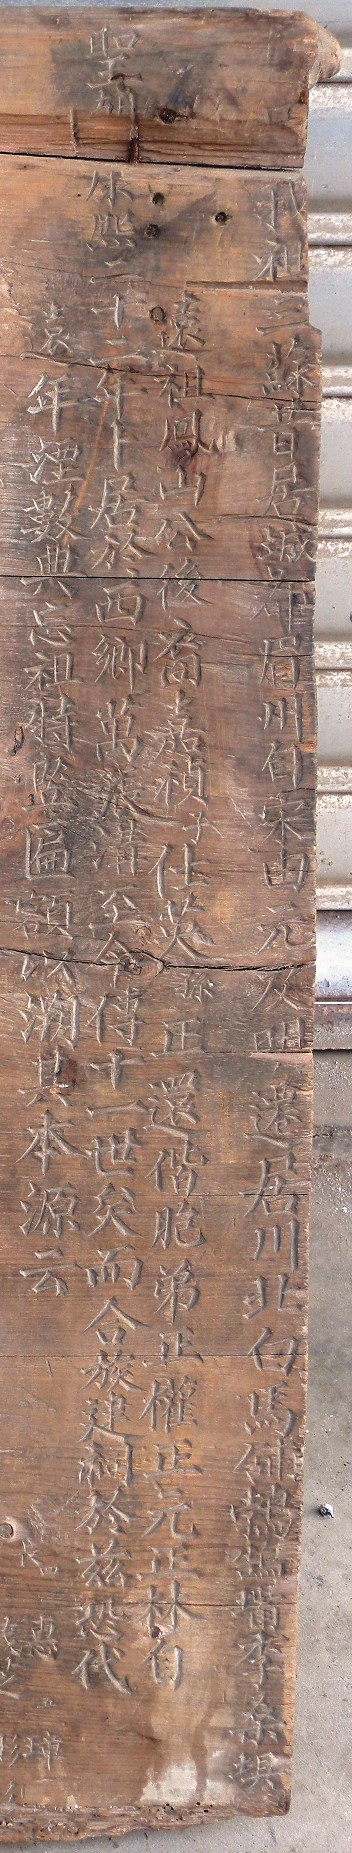 我祖三蘇昔居誠郡眉州自宋由元及明遷居川北白馬
遠祖鳳山公後裔嘉禎子仕英孫正還偕胞弟正權正元正林自
聖朝康熙三十二年卜居於西鄉萬家溝至今傳十一世矣而合族建祠於茲恐代
遠年湮數典忘祖特竪匾額以溯其本源云